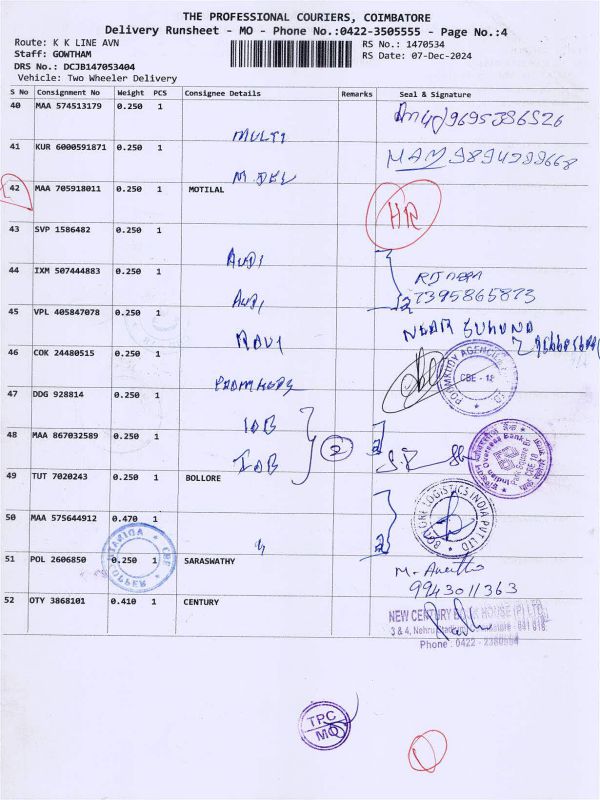 THE PROFESSIONAL COURIERS, COIMBATORE
Delivery Runsheet - MO - Phone No.:0422-3505555 - Page No.:4
Route: K K LINE AVN
RS No.: 1470534
Staff: GOWTHAM
RS Date: 07-Dec-2024
DRS No.: DCJB147053404
Vehicle: Two Wheeler Delivery
S No Consignment No Weight PCS Consignee Details Remarks Seal & Signature
40 MAA 574513179 0.250 1 MULTI
41 KUR 6000591871 0.250 1 M.DEL
42 MAA 705918011 0.250 1 MOTILAL HR
43 SVP 1586482 0.250 1 AUDI
44 IXM 507444883 0.250 1 AUDI 2 7395865873
45 VPL 405847078 0.250 1 RAVI
46 COK 24480515 0.250 1 CBE - 18
47 DDG 928814 0.250 1 IOB
48 MAA 867032589 0.250 1 IOB 2 2 Indian Overseas Bank
49 TUT 7020243 0.250 1 BOLLORE
50 MAA 575644912 0.470 1 2 LOGISTICS INDIA PVT LTD
51 POL 2606850 0.250 1 SARASWATHY M. 9943011363
52 OTY 3868101 0.410 1 CENTURY
NEW CENTURY BOOK HOUSE (P) LTD.
3 & 4, Nehru Stadium, 641 018.
Phone : 0422 - 2380554
TPC
MO